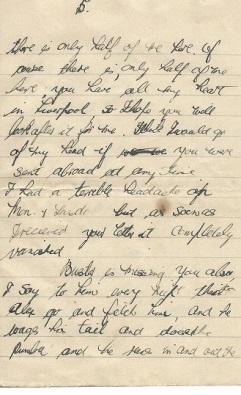 5.
there is only half of me here, of
course there is, only half of me
here, you have all my heart
in Liverpool so I hope you will
look after it for me. I would go
of my head if you were
sent abroad at any time
I had a terrible headache on
Mon. & but as soon as
I received your letter it completely
vanished
is missing you also
I say to him every night
Alex go and fetch him, and he
wages his tail and does the
Rumba and he runs in and out the